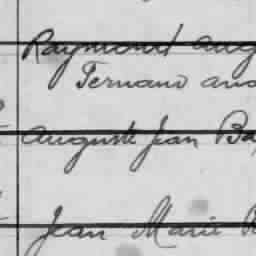 Raymond Aug
Fernand And
Auguste Jean Ba
Jean Marie